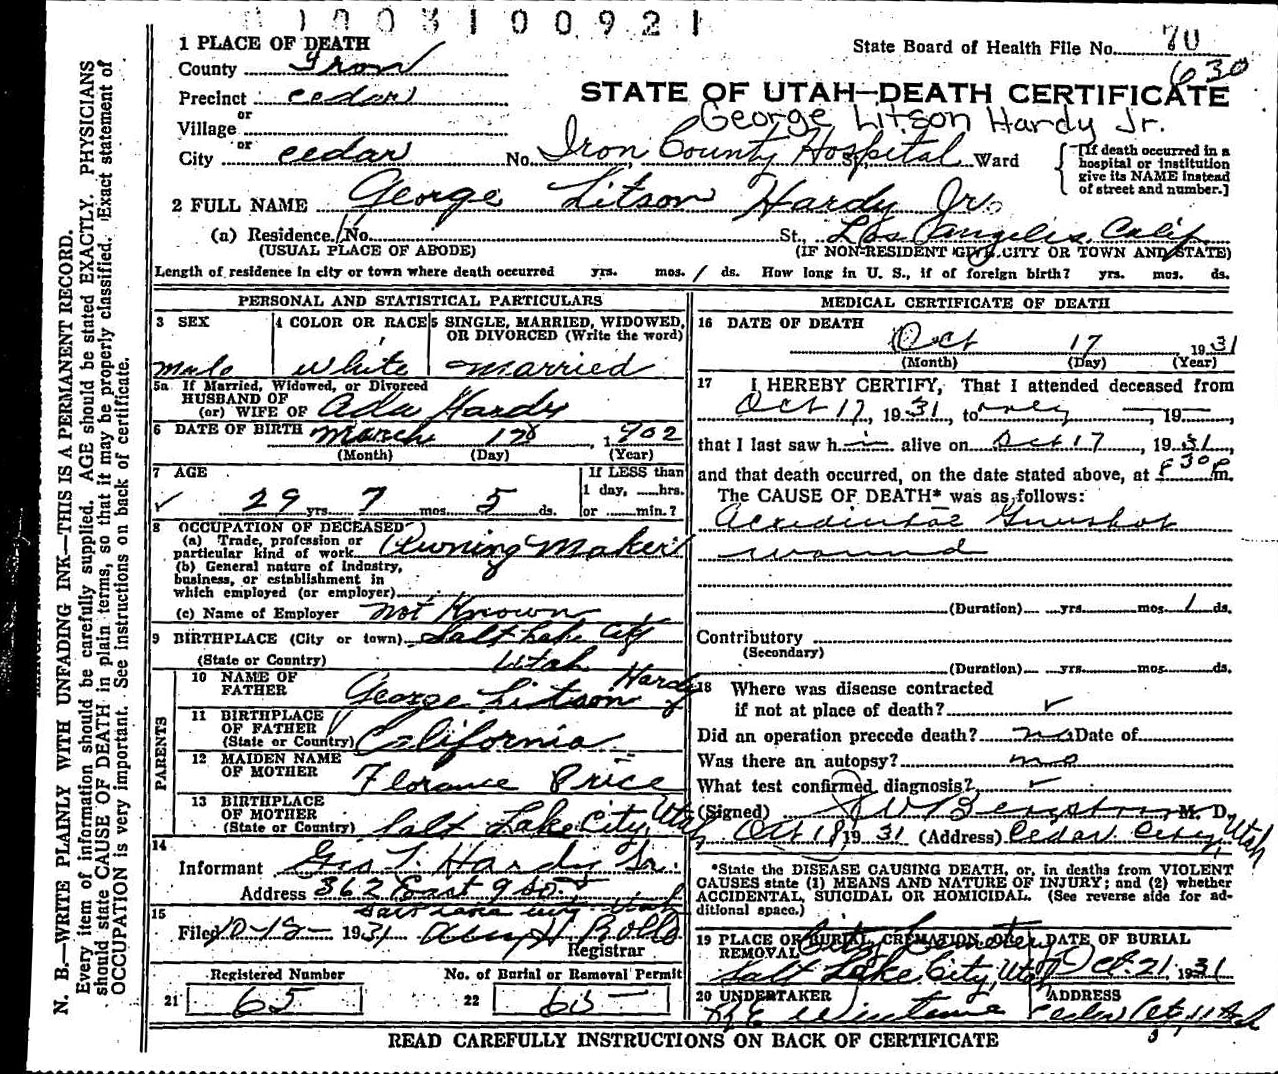 003100921
1 PLACE OF DEATH
State Board of Health File No. 70
630
County Iron
Precinct Cedar
STATE OF UTAH—DEATH CERTIFICATE
George Litson Hardy Jr.
or
Village
or
City Cedar No. Iron County Hospital St., Ward
[If death occurred in a hospital or institution give its NAME instead of street and number.]
2 FULL NAME George Litson Hardy Jr.
(a) Residence. No. St., Los Angeles, Calif
(USUAL PLACE OF ABODE) (IF NON-RESIDENT GIVE CITY OR TOWN AND STATE)
Length of residence in city or town where death occurred yrs. mos. 1 ds. How long in U. S., if of foreign birth? yrs. mos. ds.
PERSONAL AND STATISTICAL PARTICULARS
3 SEX
Male
4 COLOR OR RACE
White
5 SINGLE, MARRIED, WIDOWED, OR DIVORCED (Write the word)
Married
5a If Married, Widowed, or Divorced
HUSBAND OF
(or) WIFE OF Ada Hardy
6 DATE OF BIRTH March 12, 1902
(Month) (Day) (Year)
7 AGE
29 yrs. 7 mos. 5 ds.
If LESS than
1 day, hrs.
or min.?
8 OCCUPATION OF DECEASED
(a) Trade, profession or particular kind of work Awning Maker
(b) General nature of Industry, business, or establishment in which employed (or employer)
(c) Name of Employer Not Known
9 BIRTHPLACE (City or town) Salt Lake City
(State or Country) Utah
PARENTS
10 NAME OF FATHER George Litson Hardy
11 BIRTHPLACE OF FATHER (State or Country) California
12 MAIDEN NAME OF MOTHER Florance Price
13 BIRTHPLACE OF MOTHER (State or Country) Salt Lake City, Utah
14
Informant Geo L. Hardy Sr.
Address 362 East 9 So.
Salt Lake City Utah
15
Filed 10-18- 1931
Registrar
Registered Number
21 65
No. of Burial or Removal Permit
22 65
MEDICAL CERTIFICATE OF DEATH
16 DATE OF DEATH
Oct 17 1931
(Month) (Day) (Year)
17 I HEREBY CERTIFY, That I attended deceased from
Oct 17, 1931, to 19
that I last saw h i alive on Oct 17, 1931,
and that death occurred, on the date stated above, at 830 P m.
The CAUSE OF DEATH* was as follows:
Accidental Gunshot
wound
(Duration) yrs. mos. 1 ds.
Contributory
(Secondary)
(Duration) yrs. mos. ds.
18 Where was disease contracted
if not at place of death?
Did an operation precede death? no Date of
Was there an autopsy? no
What test confirmed diagnosis?
(Signed) M. D.
Oct 18 1931 (Address) Cedar City, Utah
*State the DISEASE CAUSING DEATH, or, in deaths from VIOLENT
CAUSES state (1) MEANS AND NATURE OF INJURY; and (2) whether
ACCIDENTAL, SUICIDAL OR HOMICIDAL. (See reverse side for ad-
ditional space.)
19 PLACE OF BURIAL, CREMATION OR REMOVAL City Cemetery
Salt Lake City, Utah
DATE OF BURIAL
Oct. 21, 1931
20 UNDERTAKER
ADDRESS
Cedar City, Utah
READ CAREFULLY INSTRUCTIONS ON BACK OF CERTIFICATE
N. B.—WRITE PLAINLY WITH UNFADING INK—THIS IS A PERMANENT RECORD.
Every item of information should be carefully supplied. AGE should be stated EXACTLY. PHYSICIANS
should state CAUSE OF DEATH in plain terms, so that it may be properly classified. Exact statement of
OCCUPATION is very important. See instructions on back of certificate.